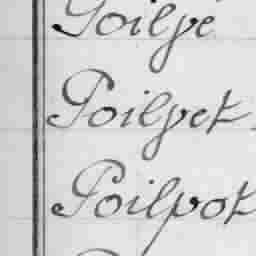 Poilpé
Poilpet
Poilpot